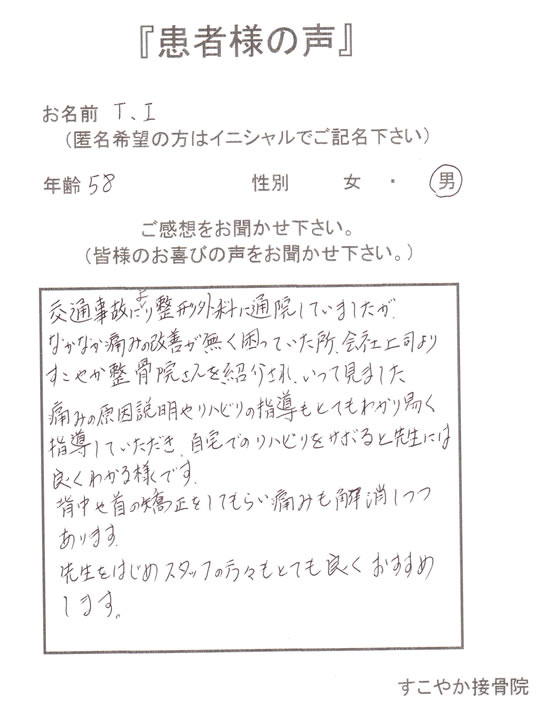 『患者様の声』
お名前 T、I
（匿名希望の方はイニシャルでご記名下さい）
年齢 58 性別 女 ・ 男
ご感想をお聞かせ下さい。
（皆様のお喜びの声をお聞かせ下さい。）
交通事故により整形外科に通院していましたが、
なかなか痛みの改善が無く困っていた所、会社上司より
すこやか整骨院さんを紹介され、いって見ました
痛みの原因説明やリハビリの指導もとてもわかり易く
指導していただき、自宅でのリハビリをサボると先生には
良くわかる様です。
背中や首の矯正をしてもらい痛みも解消しつつ
あります。
先生をはじめスタッフの方々もとても良くおすすめ
します。
すこやか接骨院